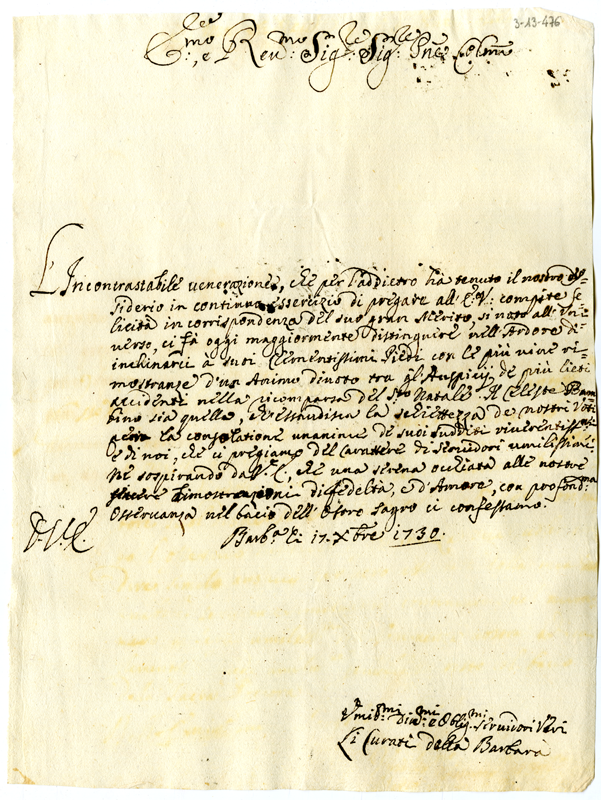 3-13-476
E.mo, e Rev.mo Sig.re Sig.re Pne. Col.mo
L'Incontrastabile venerazione, che per l'addietro hà tenuto il nostro de=
siderio in continuo essercizio di pregare all'E: V: compite fe
licità in corrispondenza del suo gran Merito, sì noto all'Uni=
verso, ci fà oggi maggiormente distinguere nell'Ardore d'
inchinarci à suoi Clementissimi Piedi con le più vive ri=
mostranze d'un Animo divoto tra gl'Auspicij de più lieti
accidenti nella ricomparsa del S.to Natale. Il Celeste Bam
bino sia quello, ch'essaudisca la schiettezza de nostri Voti
per la consolatione unanime de suoi sudditi riverentissimi
e di noi, che ci pregiamo del Carattere di Servidori umilissimi.
Nè sospirando da V. E., che una serena occhiata alle nostre
sincere dimostrazioni di fedeltà, e d'Amore, con profond.ma
Osservanza nel bacio dell'Ostro Sagro ci confessiamo.
D. V. E.
Barb.a li 17. Xbre 1730.
Vmil.mi Div.mi e Oblig.mi servidori Veri
Li Curati della Barbara